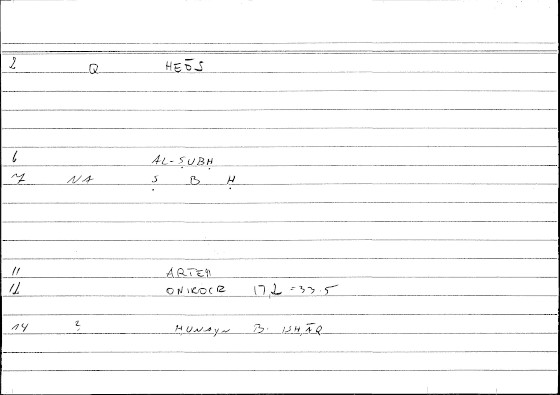 2 Q HEŌS
6 AL-ṢUBḤ
7 NA Ṣ B Ḥ
11 ARTEM
12 ONIROCR 17,2 = 33.5
14 2 ḤUNAYN B. ISḤĀQ